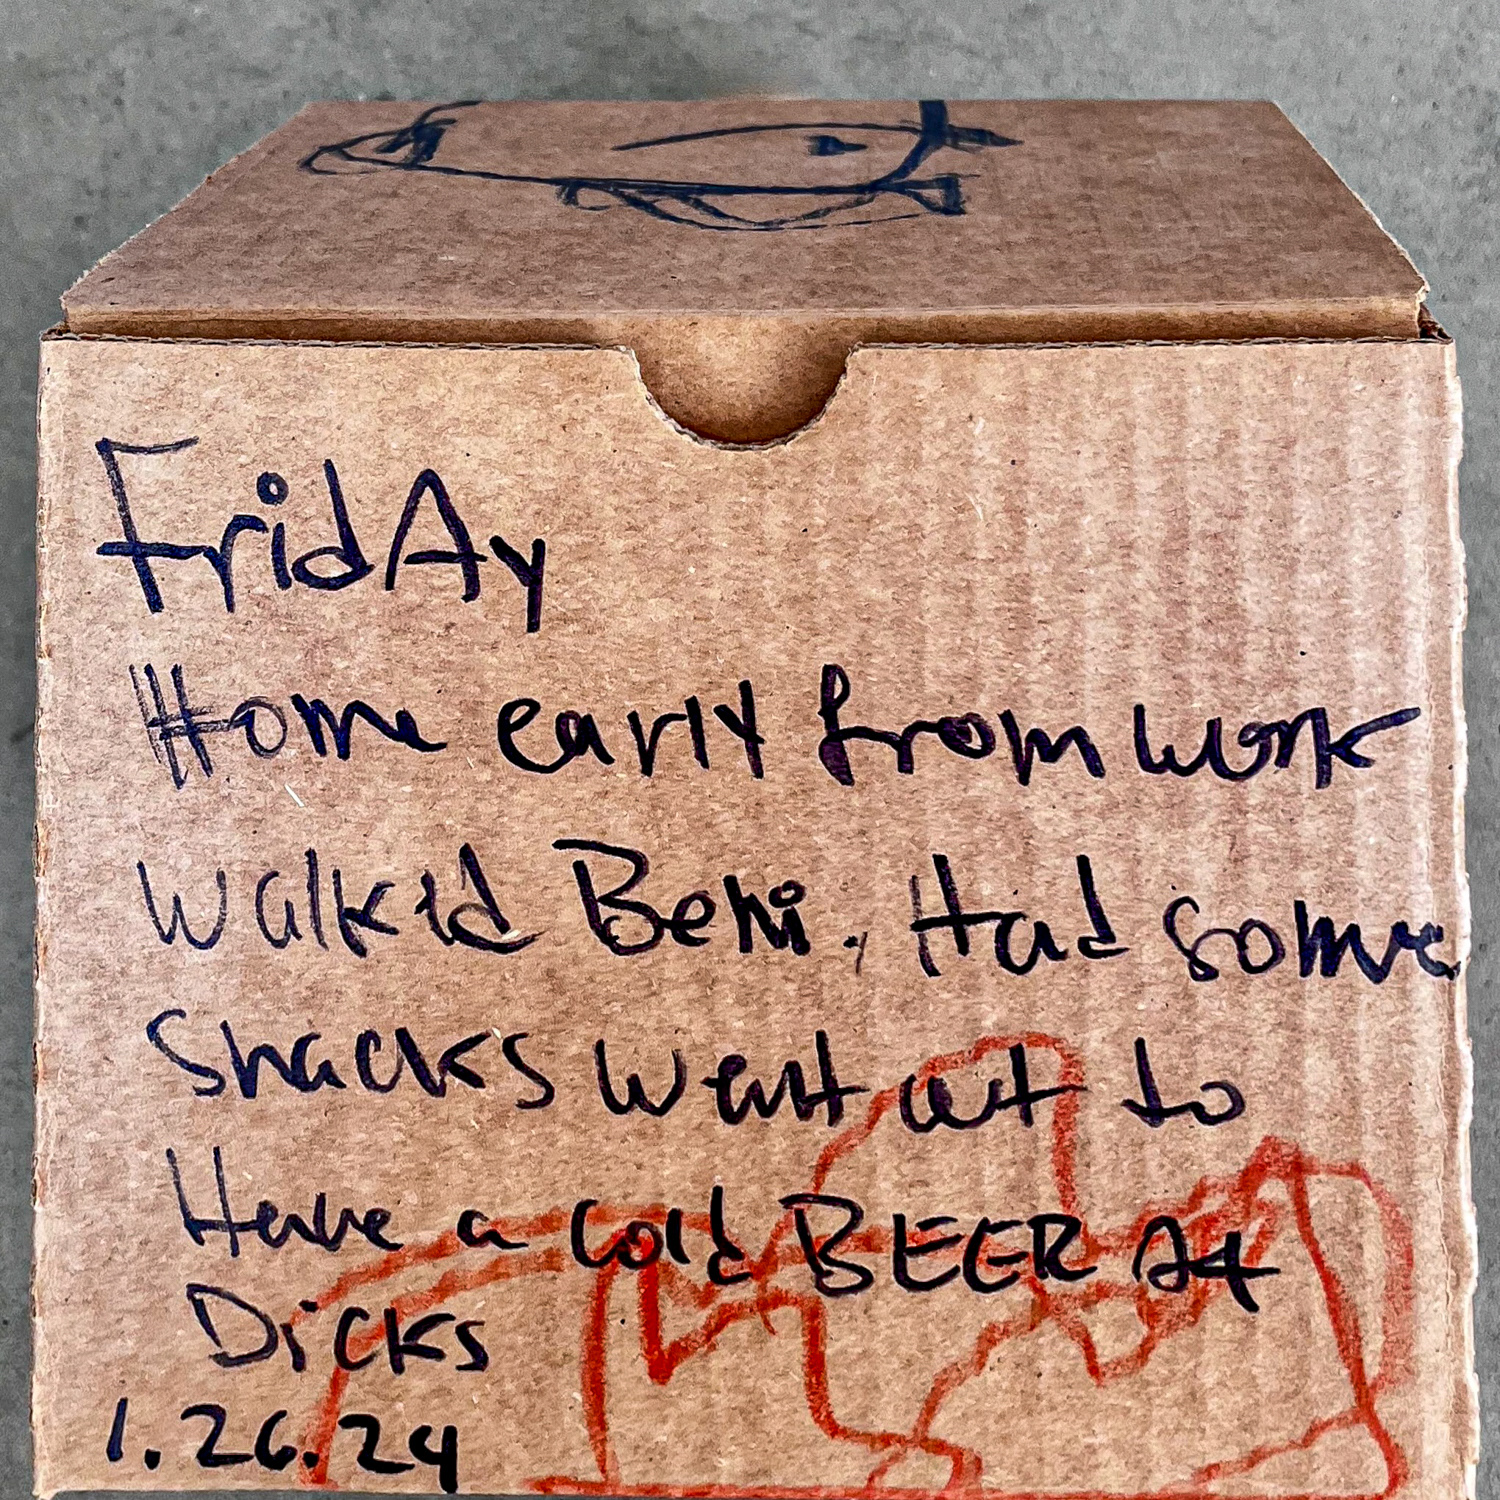 FridAy
Home early from work
Walked Beni. Had some
snacks went out to
Have a cold BEER At
Dicks
1.26.24